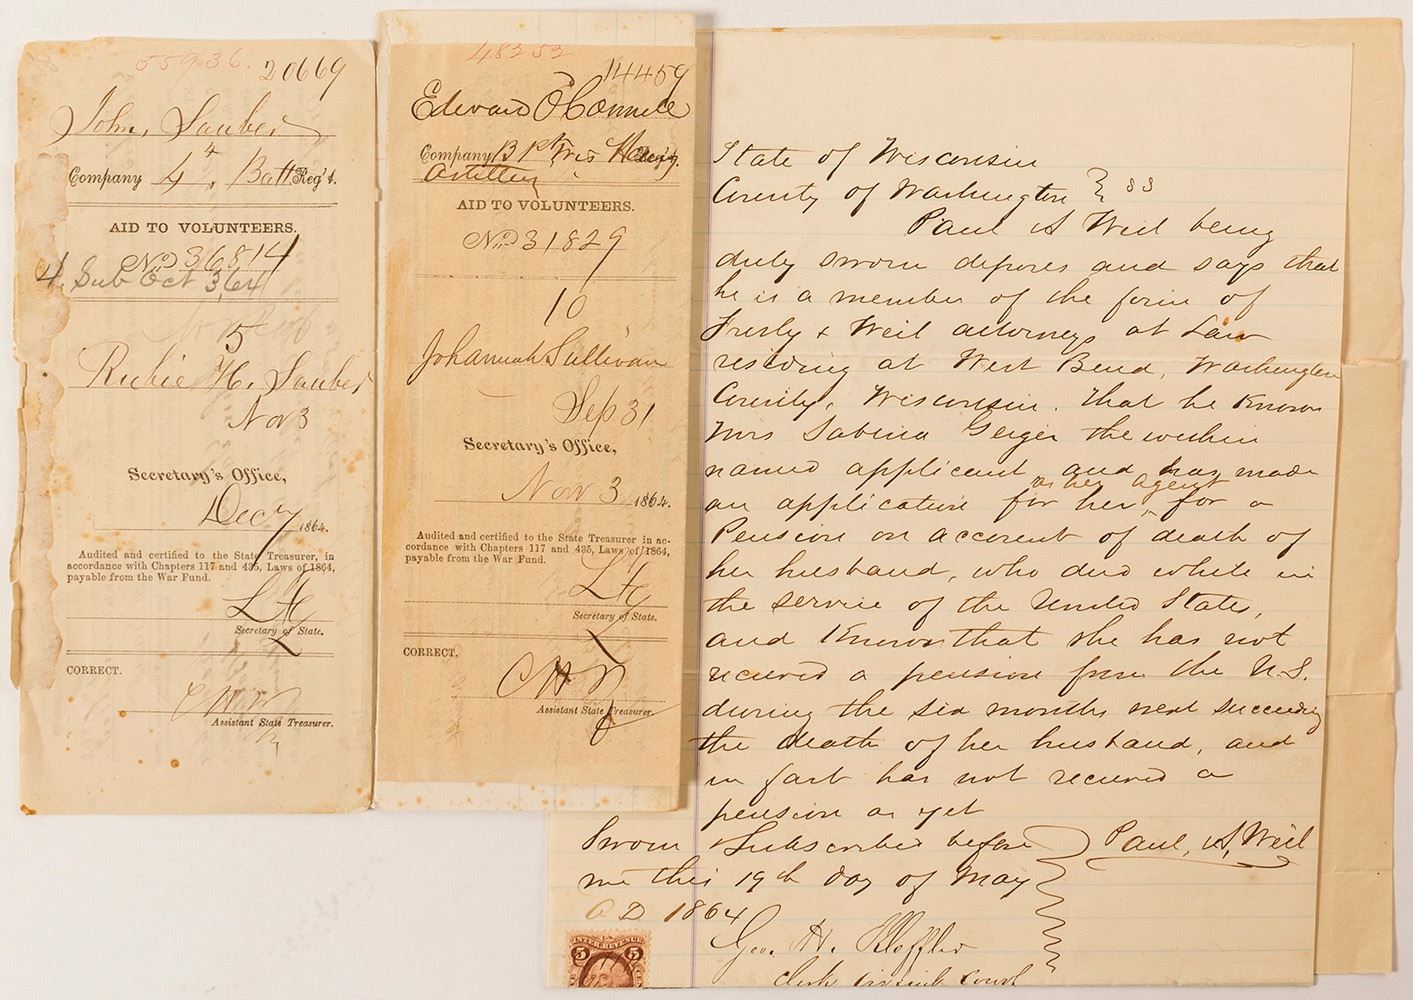 55936. 20669
John, Sauber
Company 4th, Batt Reg't.
AID TO VOLUNTEERS.
No 36814
4. Sub Oct 3, 64
5
Richie H. Sauber
Nov 3
Secretary's Office,
Dec 7 1864.
Audited and certified to the State Treasurer, in
accordance with Chapters 117 and 435, Laws of 1864,
payable from the War Fund.
Secretary of State.
CORRECT.
Assistant State Treasurer.
48252 14459
Edward O'Connell
Company B 1st Wis Heavy Reg't.
Artillery
AID TO VOLUNTEERS.
No 31829
10
Johannah Sullivan
Sep 31
Secretary's Office,
Nov 3 1864.
Audited and certified to the State Treasurer in ac-
cordance with Chapters 117 and 435, Laws of 1864,
payable from the War Fund.
Secretary of State.
CORRECT.
Assistant State Treasurer.
State of Wisconsin
County of Washington } SS
Paul A Weil being
duly sworn deposes and says that
he is a member of the firm of
Frisby & Weil attorneys at Law
residing at West Bend, Washington
County, Wisconsin. That he knows
Mrs Sabina Geiger the within
named applicant and has made
as her agent
an application for her, for a
Pension on account of death of
her husband, who died while in
the service of the United States,
and knows that she has not
received a pension from the U.S.
during the six months next succeeding
the death of her husband, and
in fact has not received a
pension as yet
Sworn & Subscribed before } Paul, A, Weil
me this 19th day of May
AD 1864
Geo. H. Kleffler
clerk circuit court
U.S.
INTER. REVENUE
5 5